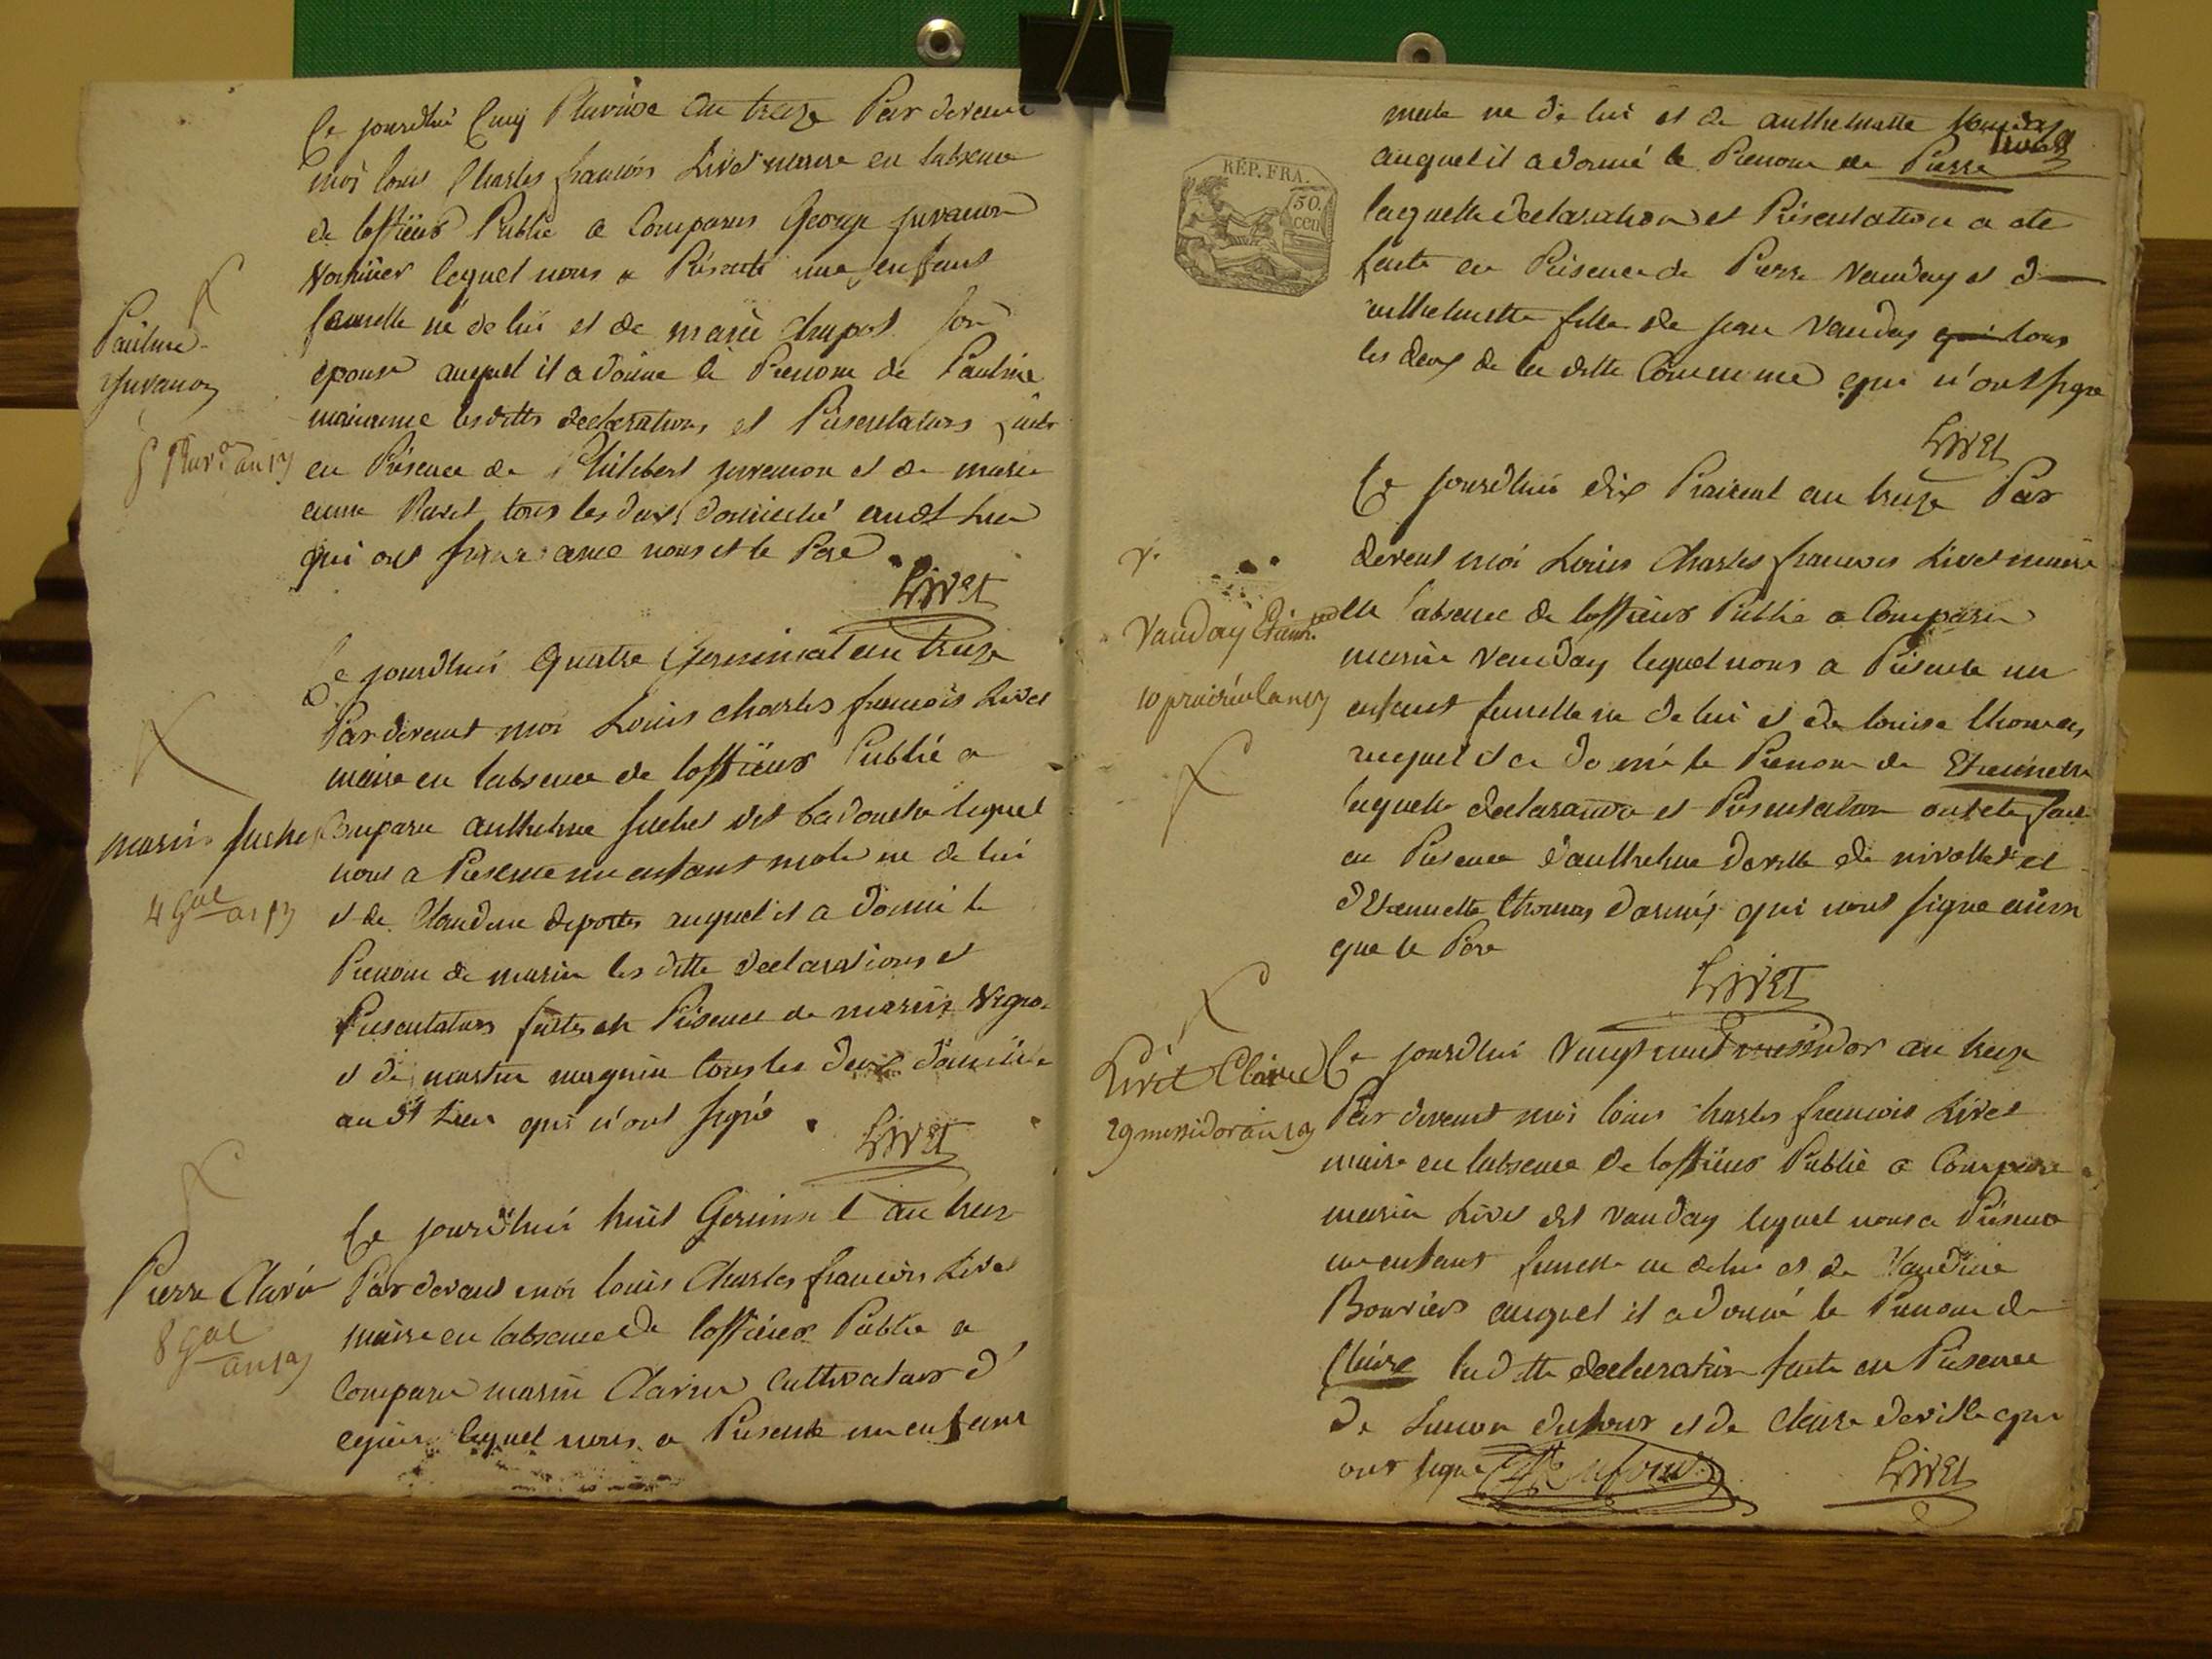 Ce jourdhui Cinq Pluviose an treze Par devent
moi louis Charles francois Livet maire en labsence
de lofficier Public a Comparus George juvanon
lequel nous a Présenté une enfant
femelle né de lui et de marie chapot son
epouse auquel il a donné le Prenom de Pauline
marianne lesdittes declarations et Présentations faite
en Présence de Philibert juvanon et de marie
anne tous les deux domicilié audt lieu
qui ont avec nous et le Pere
Livet
Pauline
Juvanon
5 Pluv. an 13
Ce jourdhui quatre Germinal an treze
Par devent moi Louis charles francois Livet
maire en labsence de lofficier Public a
Comparu anthelme suchet dit lequel
nous a Présenté un enfant male né de lui
et de Claudine deportes auquel il a donné le
Prenom de marin les ditte declarations et
Presentations faites en Présence de marin
et de martin magnin tous les deux domicilié
au dt Lieu qui n'ont signé
Livet
marin suchet
4 gal an 13
Ce jourdhui huit Germinal an treze
Par devant moi louis Charles francois Livet
maire en labsence de lofficier Public a
Comparu marin Clarin Cultivateur d'
lequel nous a Présenté un enfant
Pierre Clarin
8 gal
an 13
male né de lui et de anthelmette
auquel il a donné le Prenom de Pierre
laquelle declaration et Présentation a eté
faite en Présence de Pierre Vanday et d
anthelmette fille de jean Vanday qui tous
les deux de la ditte Commune qui n'ont signé
Livet
RÉP. FRA.
50.
cen
Ce jourdhui dix Prairial an treze Par
devent moi Louis Charles francois Livet maire
en labsence de lofficier Public a Comparu
marin Vanday lequel nous a Présenté un
enfant femelle né de lui et de louise thomas
auquel il a donné le Prenom de Etiennette
laquelle declaration et Présentation ont eté faite
en Présence d'anthelme deville de et
d'Etiennette thomas qui n'ont signé ainsi
que le Pere
Livet
Vanday Etienn.
10 prairial an 13
Ce jourdhui vingt neuf messidor an treze
Par devent moi louis charles francois Livet
maire en labsence de lofficier Public a Comparu
marin Livet dit vanday lequel nous a Présenté
un enfant femelle né de lui et de Claudine
Bouvier auquel il a donné le Prenom de
Claire laditte declaration faite en Présence
de dufour et de Claire deville qui
ont signé dufour Livet
Livet Claire
29 messidor an 13